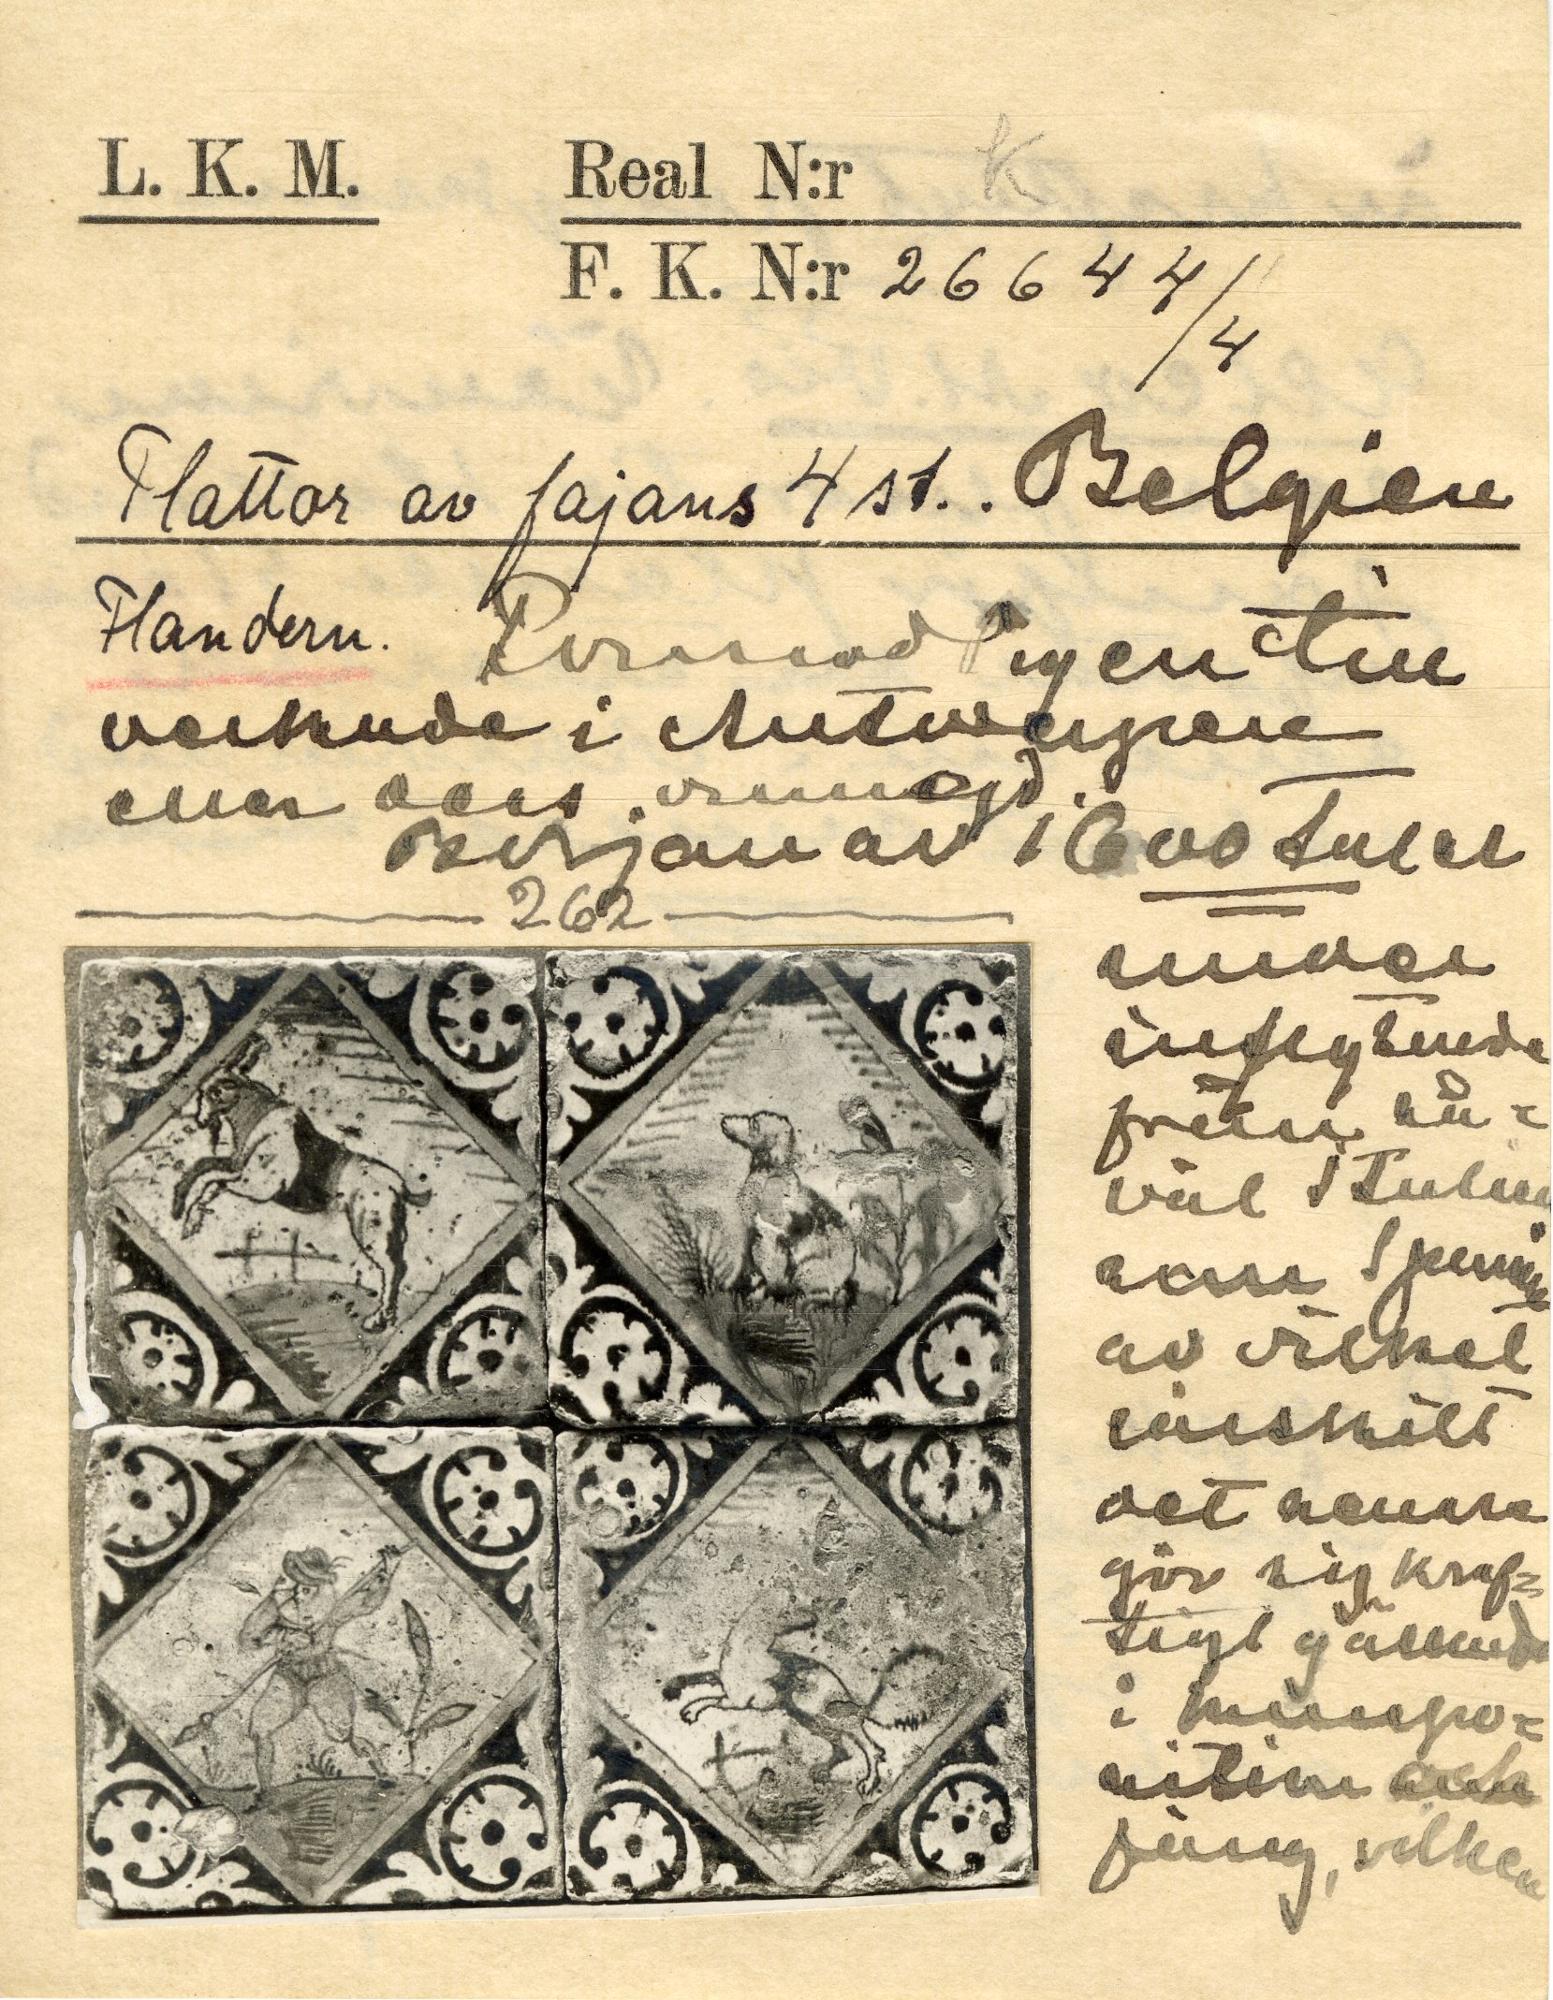 L. K. M.
Real N:r K
F. K. N:r 26644/4
Plattor av fajans 4 st.. Belgien
Flandern. Formod ligen till
verkade i Antwerpen
eller dess omnägd.
Början av 1600 talet
262
under
inflytande
från så=
väl Italien
som Spanien
av vilket
särskilt
det senare
gör sig kraf=
tigt gällande
i kompo=
sition och
färg, vilken